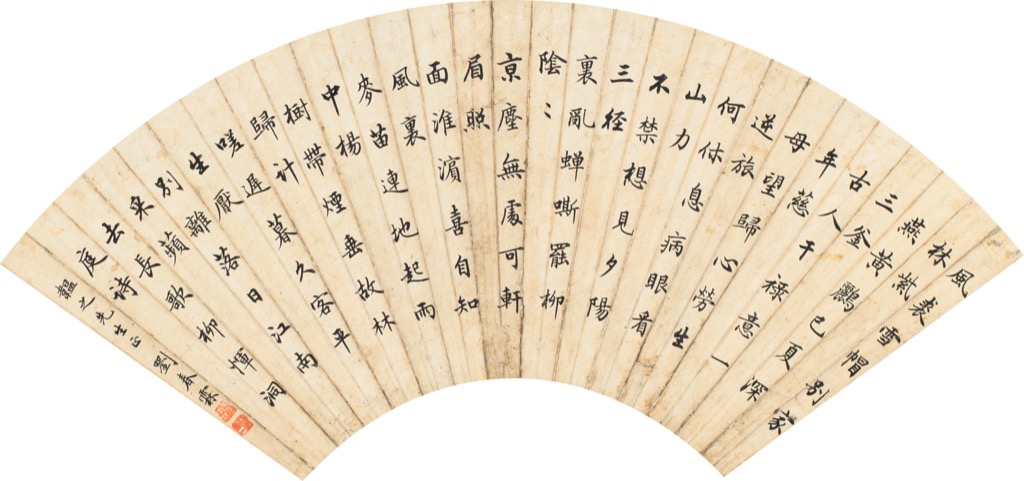 風裘雪帽別家
林紫
燕黃鸝已夏深
三釜
古人干祿意一
年慈
母望歸心勞生
逆旅
何休息病眼看
山力
不禁想見夕陽
三徑
裏亂蟬嘶罷柳
陰〻
京塵無處可軒
眉照
面淮濱喜自知
風裏
麥苗連地起雨
中楊
樹帶煙垂故林
歸計
嗟遲暮久客平
生厭
別離落日江南
采蘋
去長歌柳惲洞
庭詩
韞之先生正 劉春霖